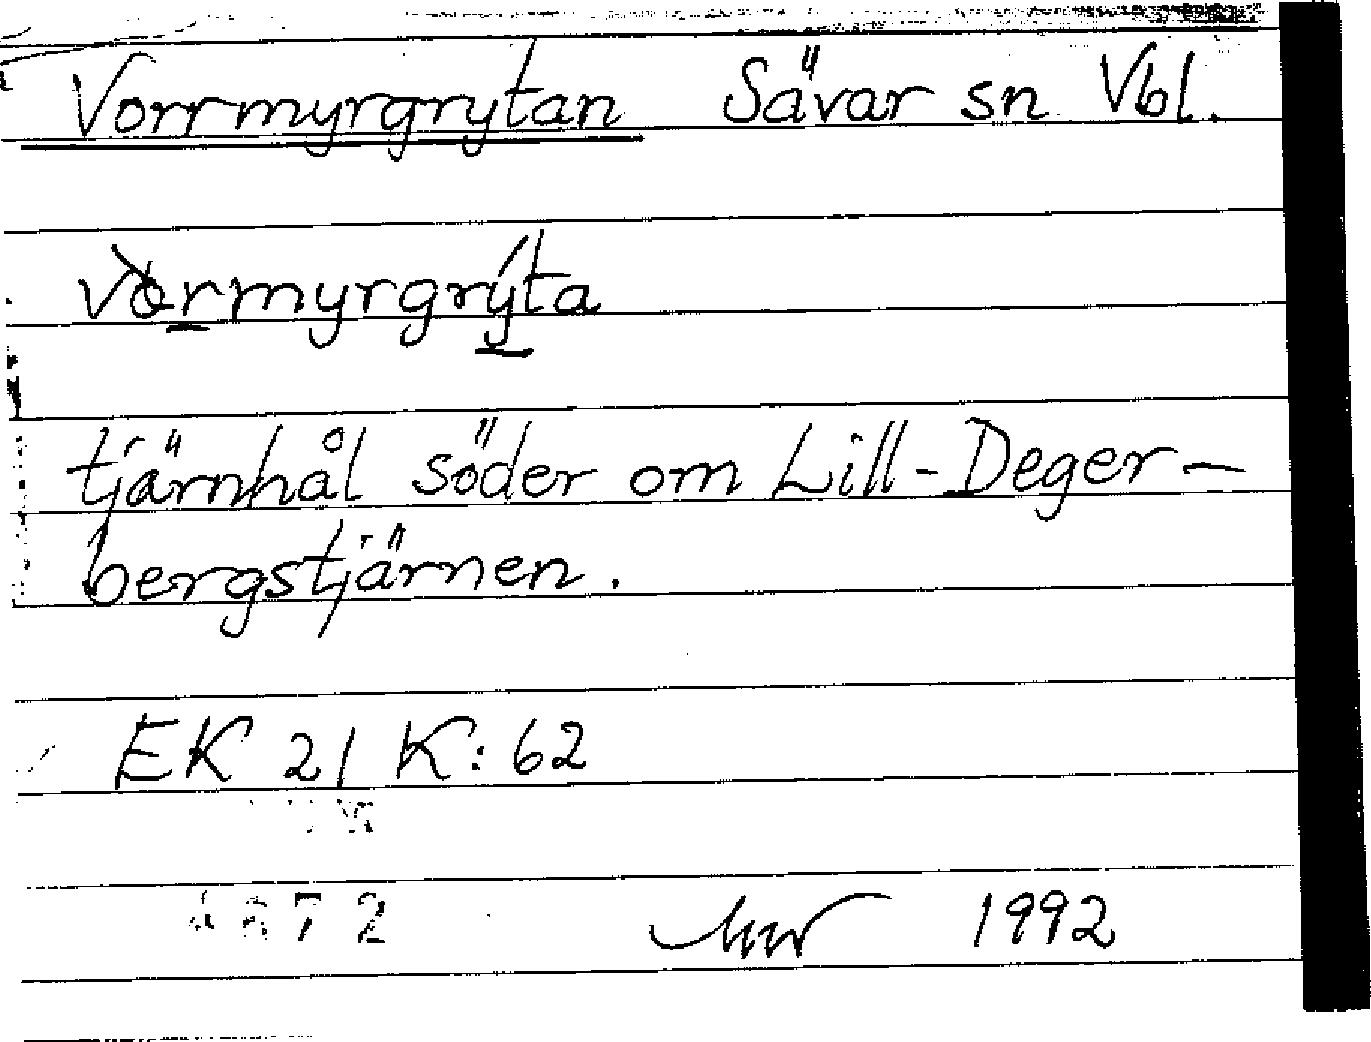 Vorrmyrgrytan Sävar sn Vbl.
vòrmyrgrýta
tjärnhål söder om Lill-Deger-
bergstjärnen.
EK 21 K: 62
1992